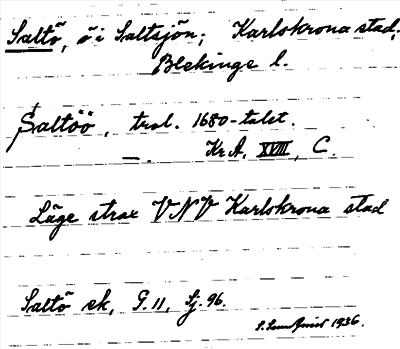 Saltö, ö i Saltsjön; Karlskrona stad,
Blekinge l.
Saltöö, trol. 1680-talet.
Kr A, XVIII, C.
Läge strax VNV Karlskrona stad
Saltö sk, G. 11, Sj. 96.
1936.